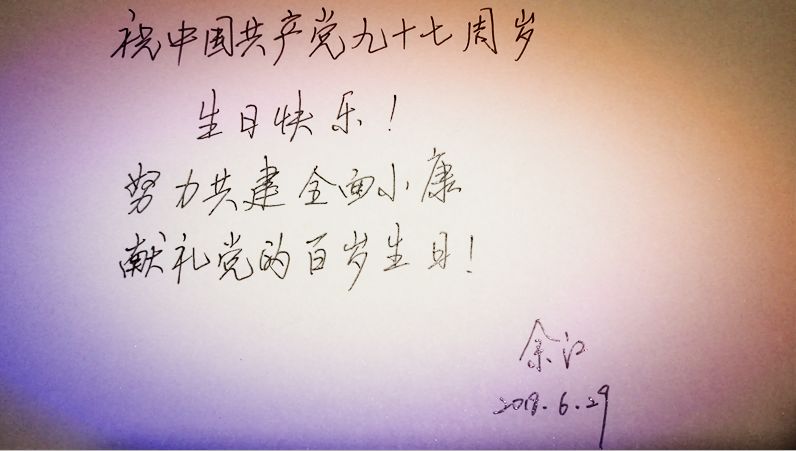 祝中国共产党九十七周岁
生日快乐!
努力共建全面小康
献礼党的百岁生日!
余江
2018.6.29